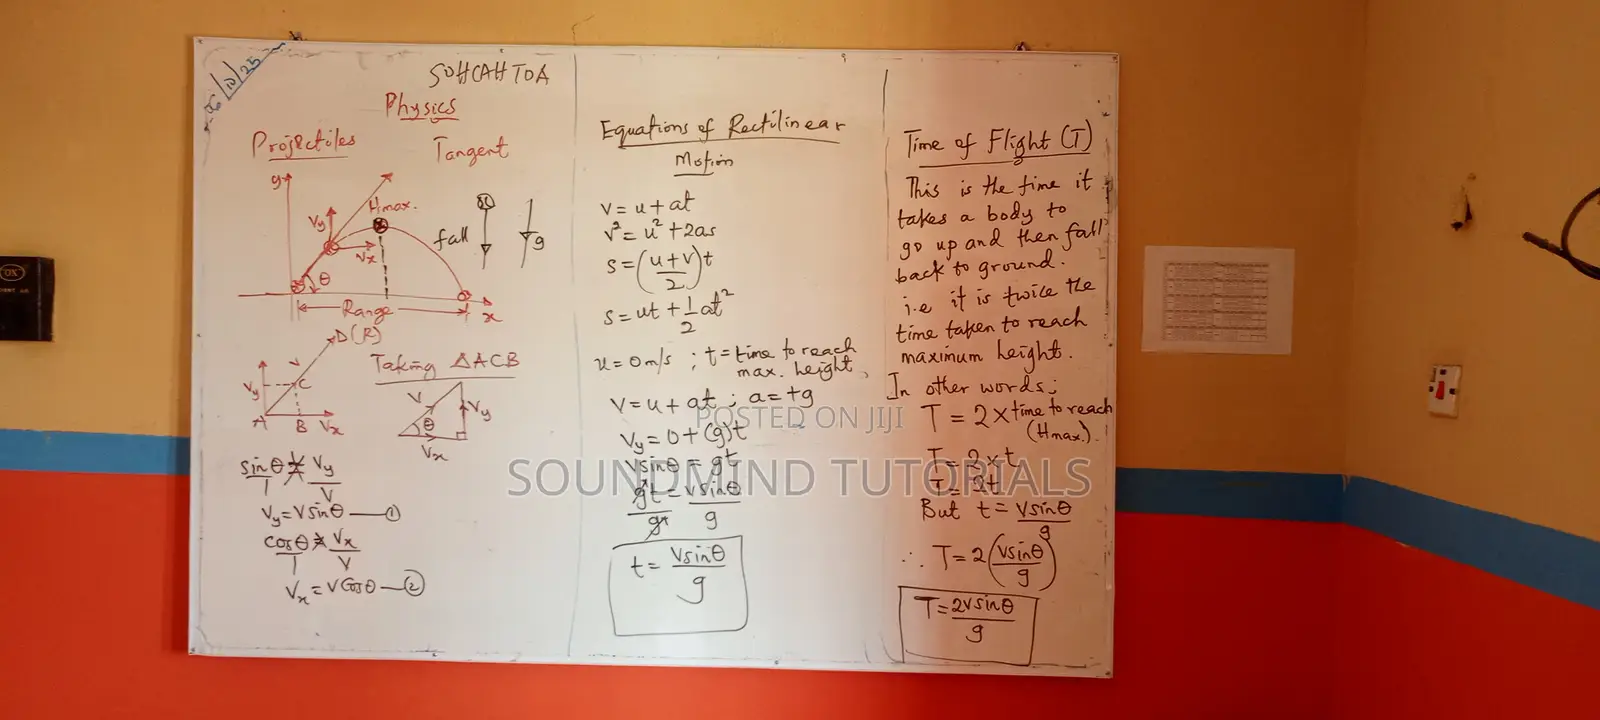 06/10/25
SOHCAHTOA
Physics
Projectiles
Tangent
y
Hmax.
Vy
Vx
θ
fall
g
Range
x
D(R)
V
Vy
C
A
B
Vx
Taking △ACB
V
Vy
θ
Vx
sinθ = Vy
1 V
Vy = Vsinθ — ①
cosθ = Vx
1 V
Vx = Vcosθ — ②
Equations of Rectilinear
Motion
V = u + at
V² = u² + 2as
S = (u + v / 2)t
S = ut + 1/2 at²
u = 0m/s ; t = time to reach
max. height,
V = u + at ; a = +g
Vy = 0 + (g)t
Vsinθ = gt
gt = Vsinθ
g g
t = Vsinθ
g
Time of Flight (T)
This is the time it
takes a body to
go up and then fall
back to ground.
i.e it is twice the
time taken to reach
maximum height.
In other words;
T = 2 × time to reach
(Hmax).
T = 2 × t
T = 2t
But t = Vsinθ
g
∴ T = 2(Vsinθ / g)
T = 2Vsinθ
g
POSTED ON JIJI
SOUNDMIND TUTORIALS